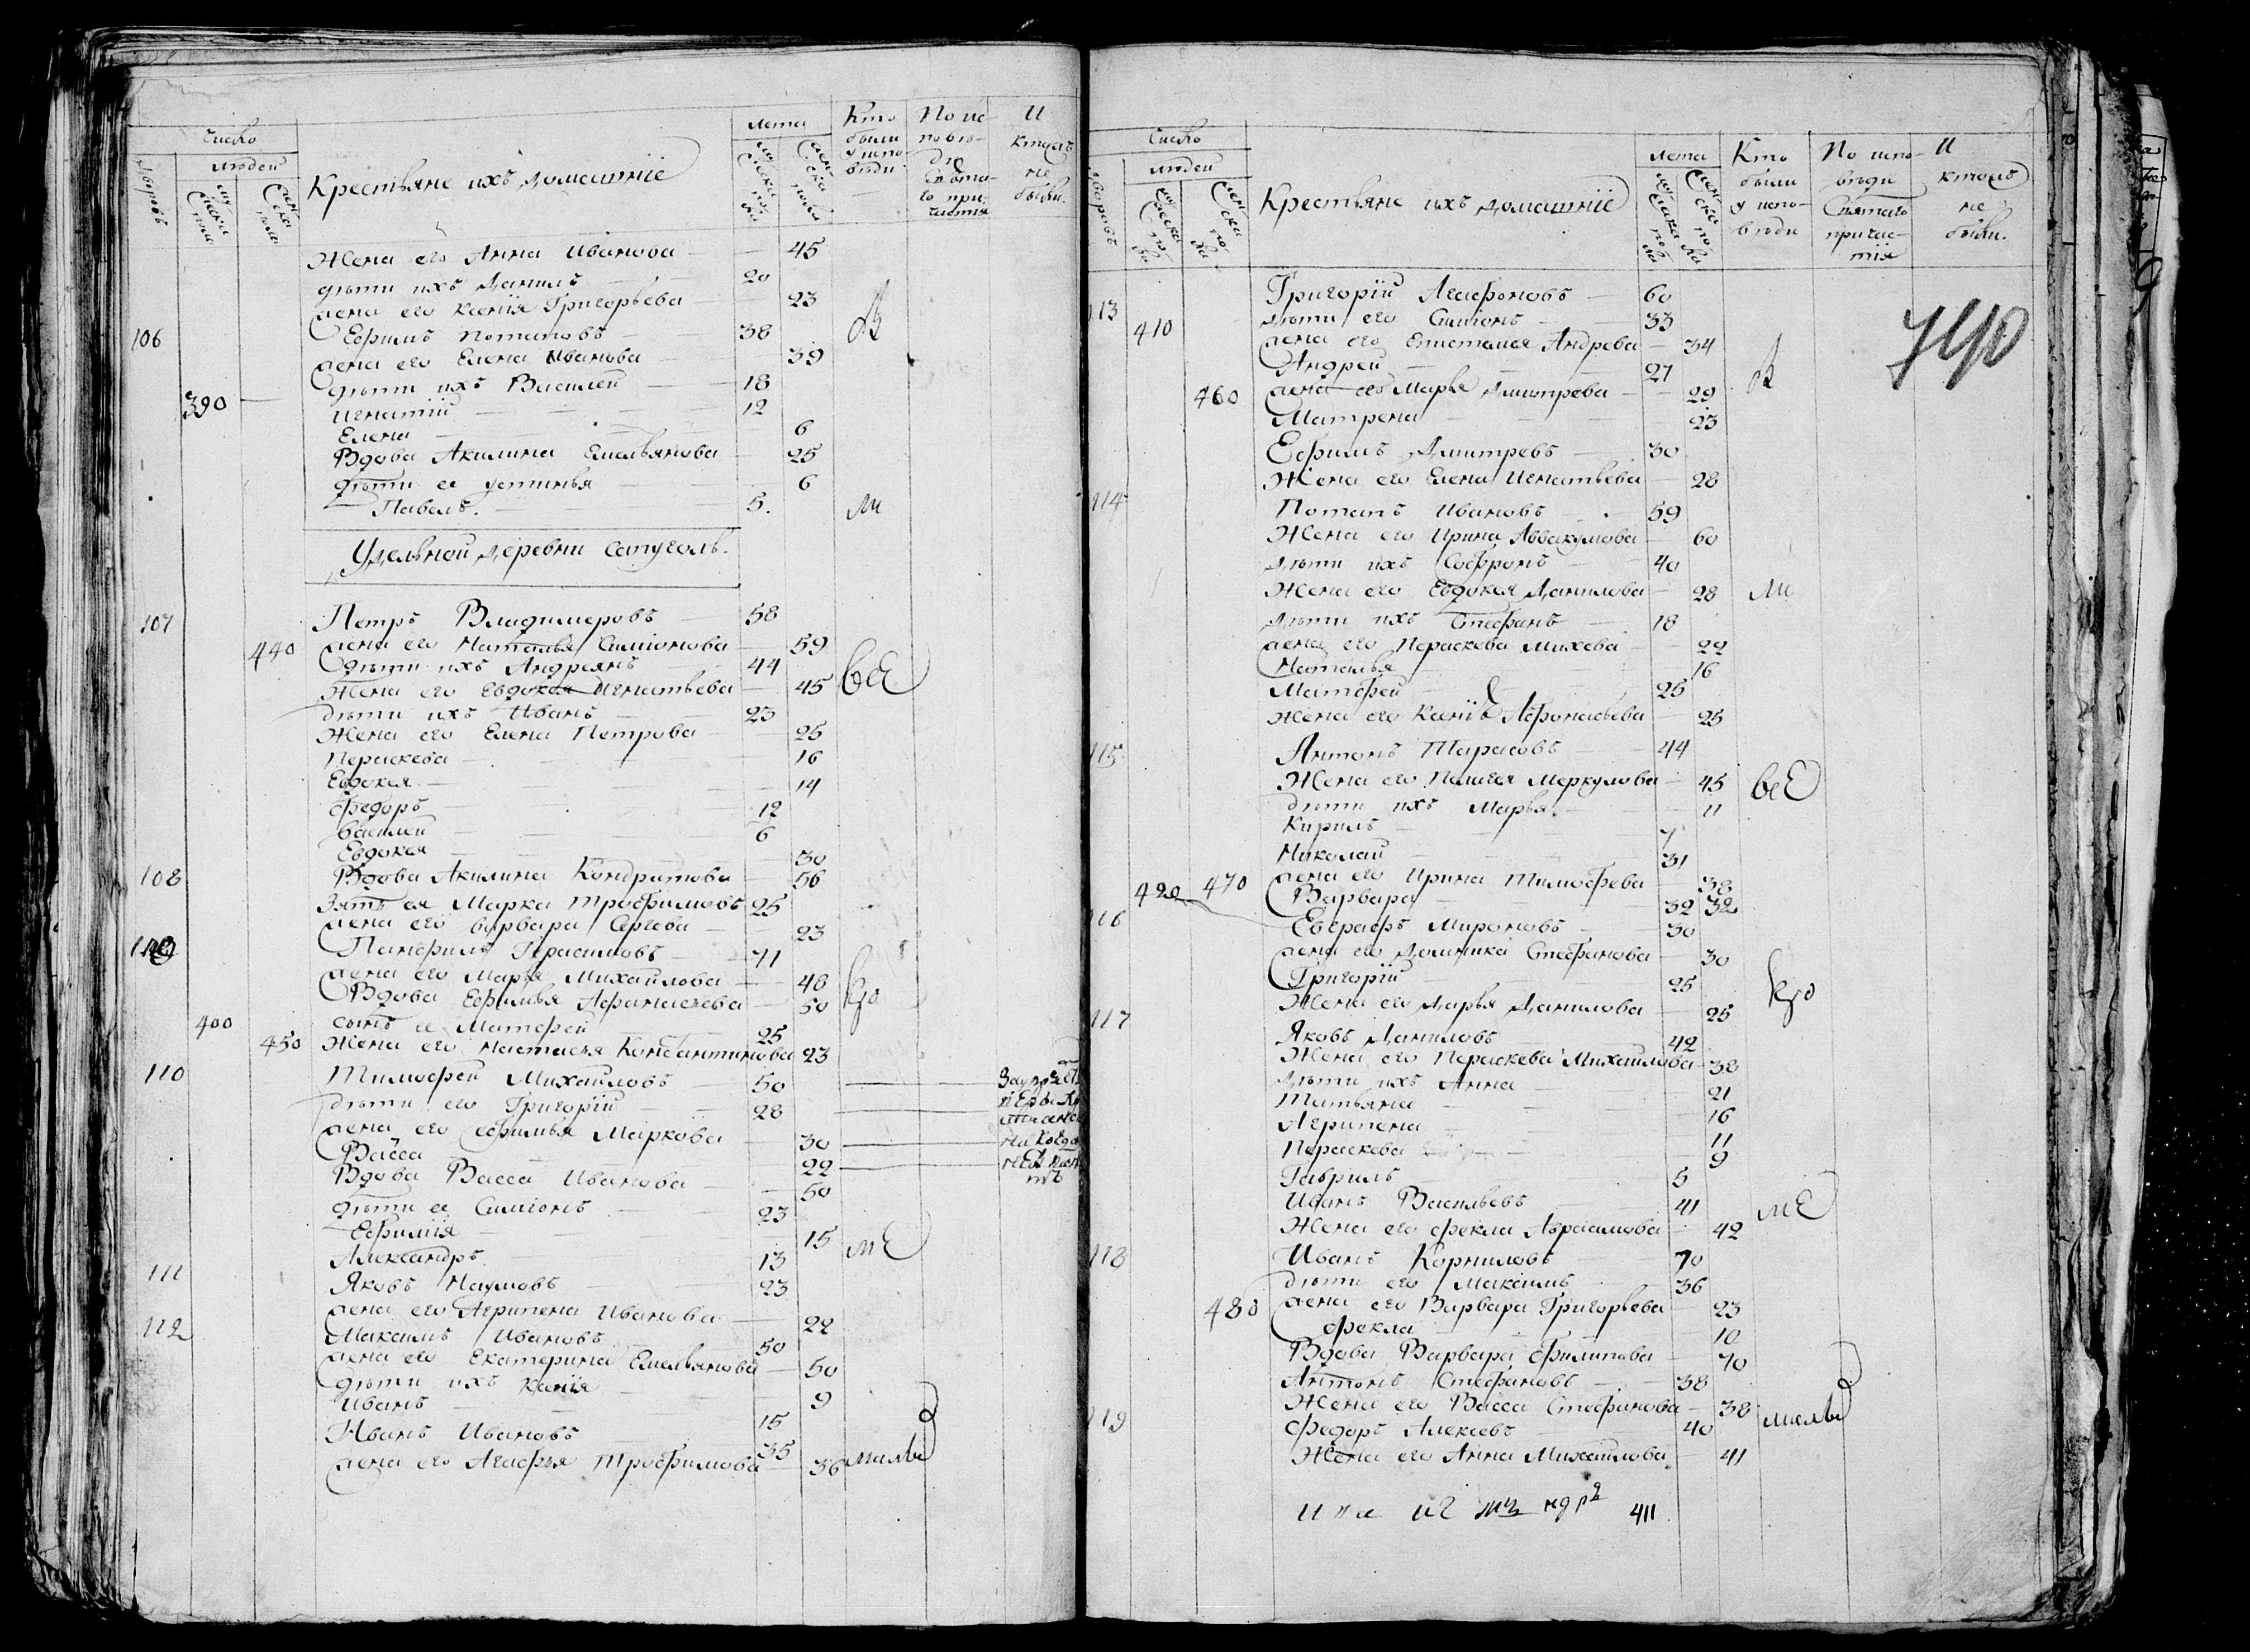 Число
людей
Дворовъ
мужеска пола
женска пола
Крестьяне ихъ домашнiе
лета
мужеска пола
женска пола
Кто были у исповѣди
По исповѣди Святаго причастiя
И ктожъ не были.
Жена его Анна Иванова — 45
дѣти ихъ Данилъ — 20
жена его Ксенiя Григорьева — 23
106 Ефимъ Потаповъ — 38
жена его Елена Иванова — 39
дѣти ихъ Василей — 18
390 Игнатiй — 12
Елена — 6
Вдова Акилина Емельянова — 25
дѣти ее Устинья — 6
Павелъ. — 5.
Удельной деревни Сапуголь.
107 Петръ Владимеровъ — 58
440 жена его Наталья Симiонова — 59
дѣти ихъ Андреянъ — 44
Жена его Евдокея Игнатьева — 45
дѣти ихъ Иванъ — 23
Жена его Елена Петрова — 25
Пераскева — 16
Евдокея — 14
Федоръ — 12
Василей — 6
Евдокея — 30
108 Вдова Акилина Кондратова — 56
Зять ея Марка Трофимовъ 25
жена его Варвара Сергева — 23
Панфилъ Герасимовъ — 71
жена его Марья Михайлова — 48
Вдова Ефимья Афанасьева — 50
400 сынъ ее Матфей — 25
450 Жена его Настасья Константинова 23
110 Тимофей Михайловъ — 50
дѣти его Григорiй — 28
жена его Ефимья Маркова — 30
Васса — 22
Вдова Васса Иванова — 50
дѣти ее Симiонъ — 23
Ефимiя — 15
Александръ — 13
111 Яковъ Наумовъ — 23
жена его Агрипена Иванова — 22
112 Максимъ Ивановъ — 50
жена его Екатерина Емельянова — 50
дѣти ихъ Ксенiя — 9
Иванъ — 15
Иванъ Ивановъ — 35
жена его Агафья Трофимова — 36
Число
людей
Дворовъ
мужеска пола
женска пола
Крестьяне ихъ домашнiе
лета
мужеска пола
женска пола
Кто были у исповѣди
По исповѣди Святаго причастiя
И ктожъ не были.
740
113 Григорiй Агафоновъ — 60
410 дѣти его Симiонъ — 33
жена его Епистамея Андрева — 34
Андрей — 27
460 жена его Марья Дмитрева — 29
Матрена — 23
Ефимъ Дмитревъ — 30
Жена его Елена Игнатьева — 28
114 Потапъ Ивановъ — 59
Жена его Ирина Аввакумова — 60
дѣти ихъ Софронъ — 40
Жена его Евдокея Данилова — 28
дѣти ихъ Стефанъ — 18
жена его Пераскева Михева — 22
Наталья — 16
Матфей — 25
Жена его Ксенiя Афонасьева — 25
115 Антонъ Тарасовъ — 44
Жена его Пелагея Меркулова — 45
дѣти ихъ Марья — 11
Кирилъ — 7
Николай — 31
жена его Ирина Тимофева — 38
420 470 Варвара — 32 32
116 Евграфъ Мироновъ — 30
жена его Домника Стефанова — 30
Григорiй — 25
Жена его Дарья Данилова — 25
117 Яковъ Даниловъ — 42
Жена его Пераскева Михайлова — 38
дѣти ихъ Анна — 21
Татьяна — 16
Агрипена — 11
Пераскева — 9
Гаврилъ — 5
Иванъ Васильевъ — 41
Жена его Фекла Аврамова — 42
118 Иванъ Корниловъ — 70
дѣти его Максимъ — 36
480 жена его Варвара Григорьева — 23
Фекла — 10
Вдова Варвара Филипова — 70
Антонъ Стефановъ — 38
Жена его Васса Стефанова — 38
119 Федоръ Алексевъ — 40
Жена его Анна Михайлова — 41
411